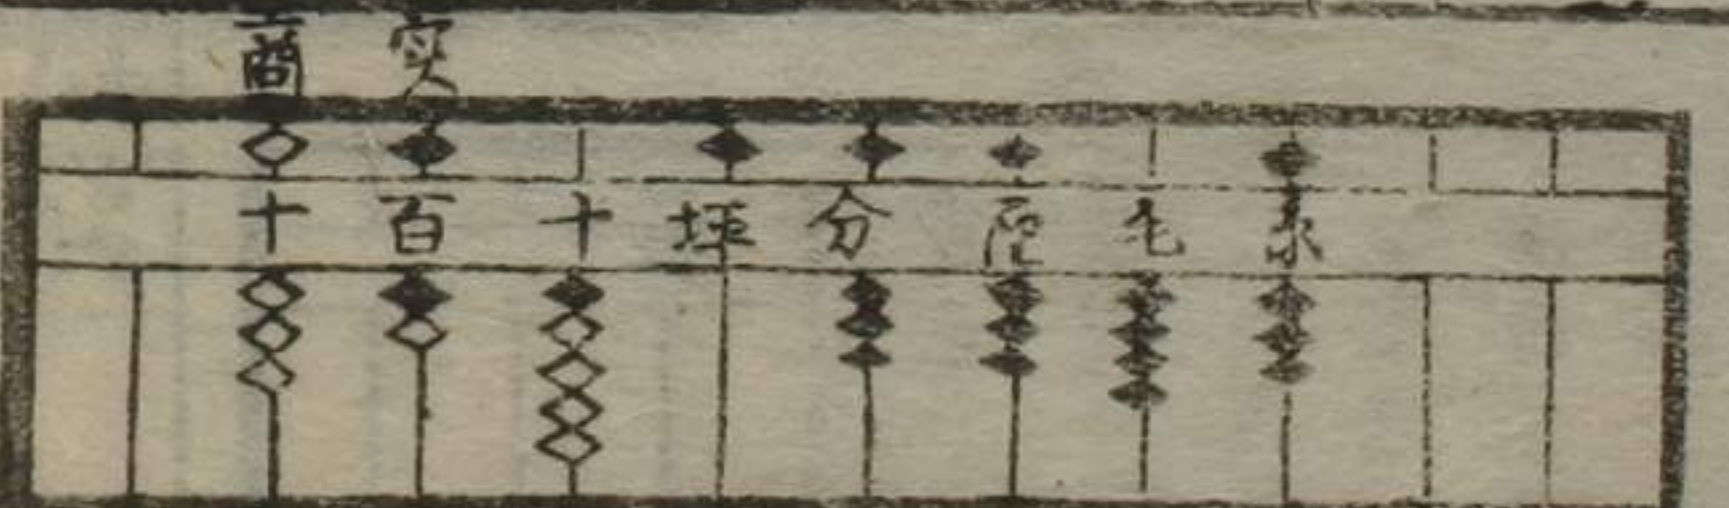 商 実
十 百 十 坪 分 厘 毛 糸